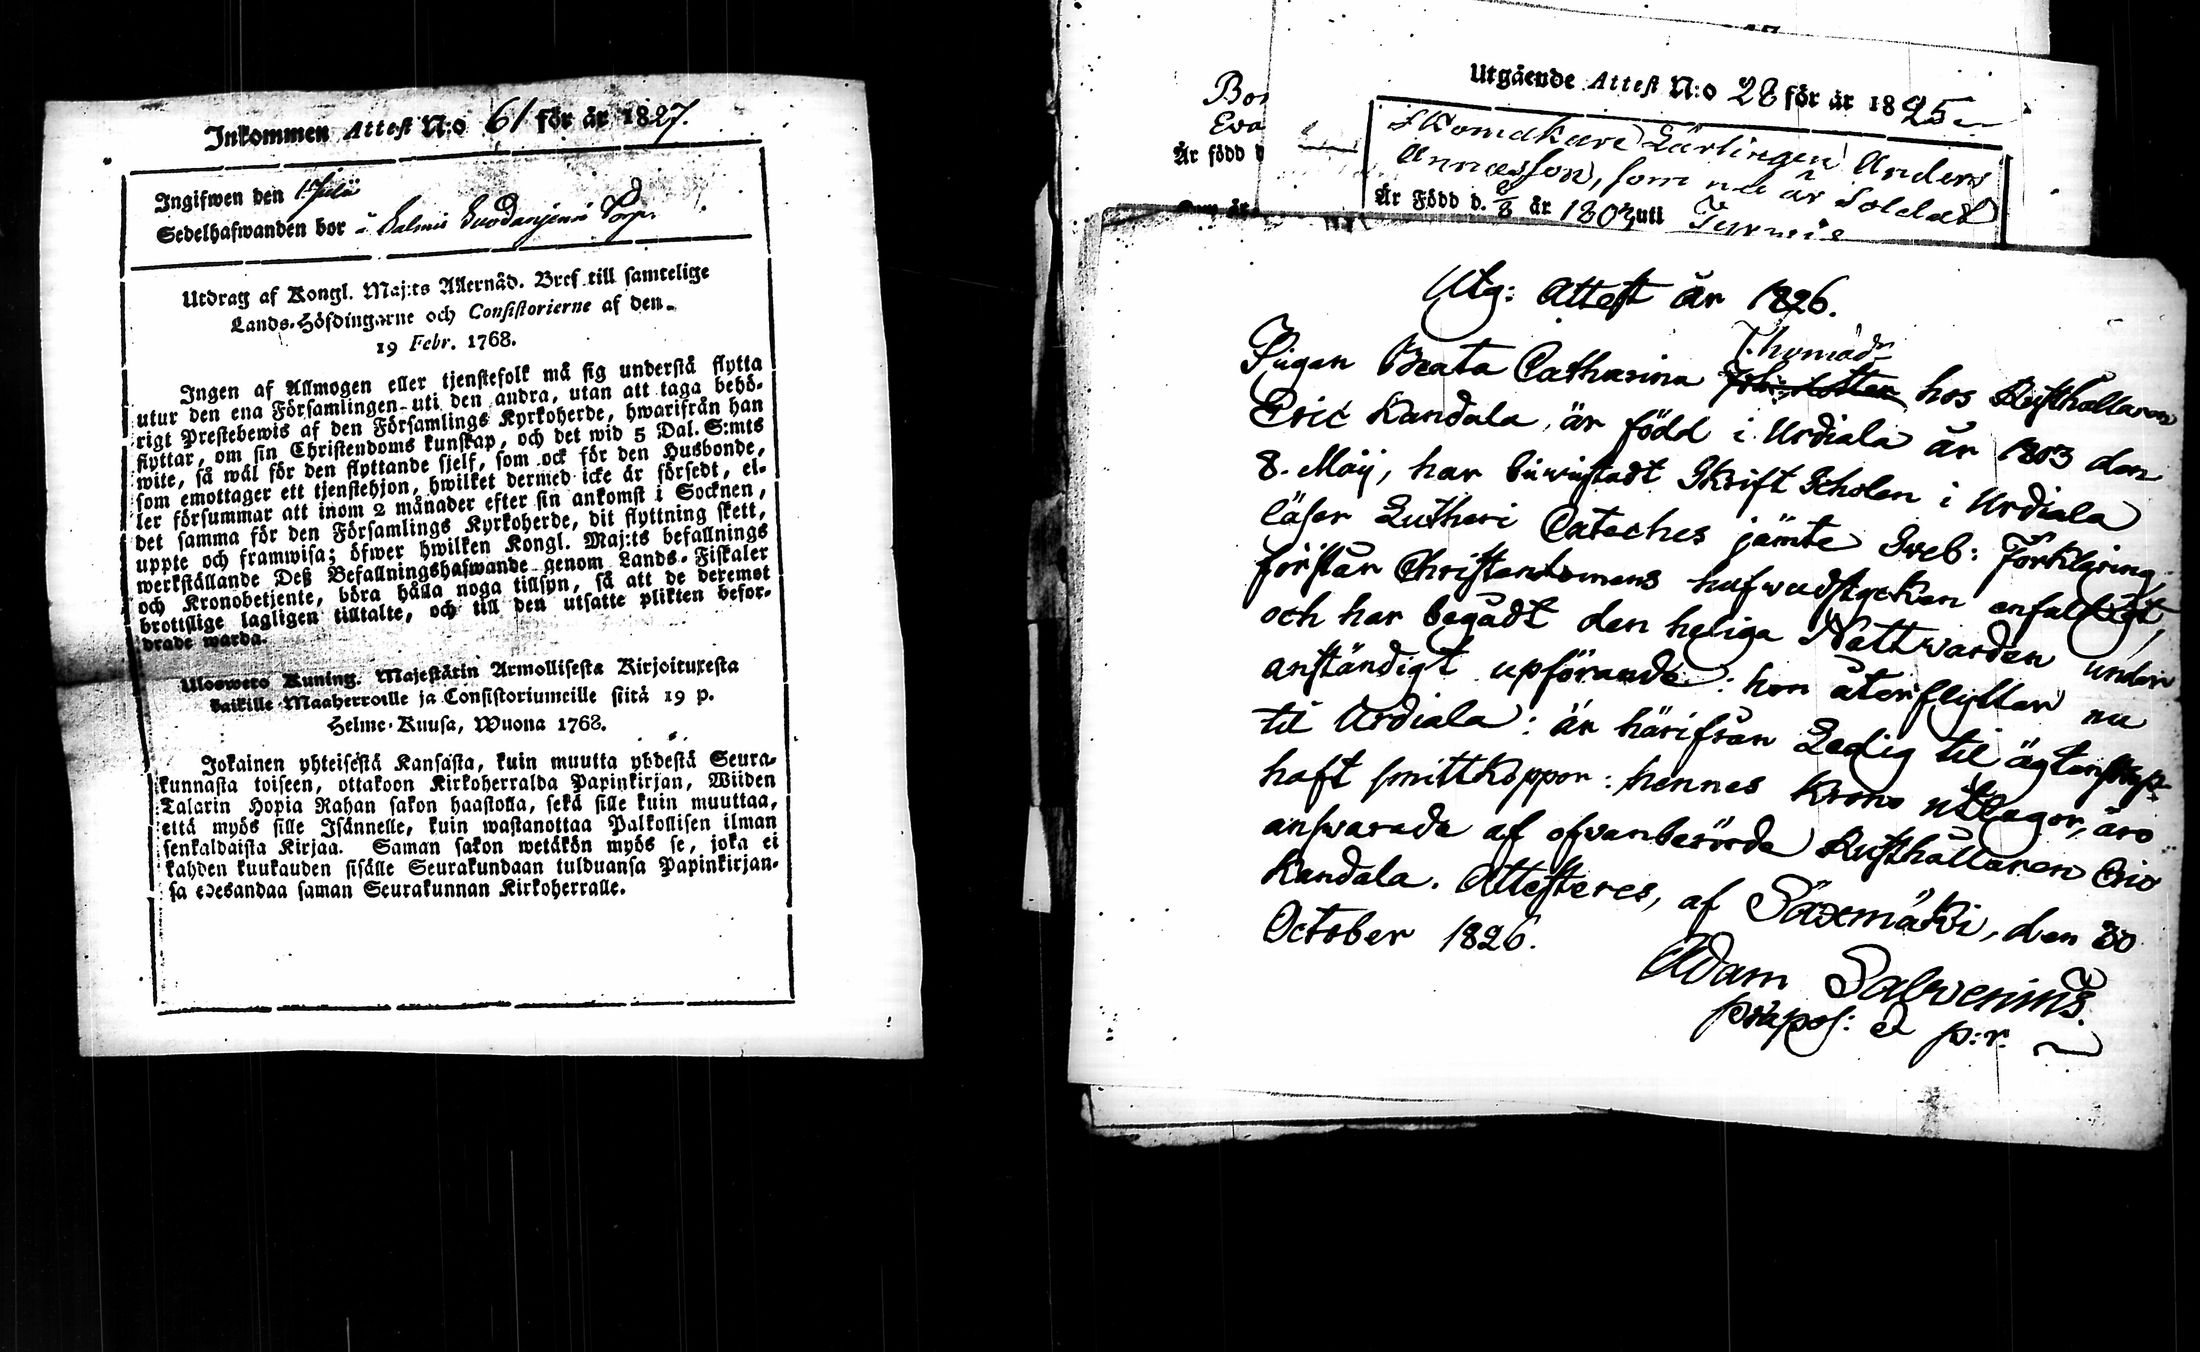 Inkommen Attest N:o 61 för år 1827.
Ingifwen den 1 Julii
Sedelhafwanden bor å Salmis Torp
Utdrag af Kongl. Maj:ts Allernåd. Bref till samtelige
Lands-Höfdingarne och Consistorierne af den
19 Febr. 1768.
Ingen af Allmogen eller tjenstefolk må sig understå flytta
utur den ena Församlingen uti den andra, utan att taga behö-
rigt Prestebewis af den Församlings Kyrkoherde, hwarifrån han
flyttar, om sin Christendoms kunskap, och det wid 5 Dal. S:mts
wite, så wäl för den flyttande sjelf, som ock för den Husbonde,
som emottager ett tjenstehjon, hwilket dermed icke är försedt, el-
ler försummar att inom 2 månader efter sin ankomst i Socknen,
det samma för den Församlings Kyrkoherde, dit flyttning skett,
uppte och framwisa; öfwer hwilken Kongl. Maj:ts befallnings
werkställande Deß Befallningshafwande genom Lands-Fiskaler
och Kronobetjente, böra hålla noga tillsyn, så att de deremot
brottslige lagligen tilltalte, och till den utsatte plikten befor-
drade warda.
Ulosweto Kuning. Majestätin Armollisesta Kirjoituxesta
kaikille Maaherroille ja Consistoriumeille siitä 19 p.
Helme-Kuusa, Wuona 1768.
Jokainen yhteisestä Kansasta, kuin muutta yhdestä Seura-
kunnasta toiseen, ottakoon Kirkoherralda Papinkirjan, Wiiden
Talarin Hopia Rahan sakon haastolla, sekä sille kuin muuttaa,
että myös sille Isännelle, kuin wastanottaa Palkollisen ilman
senkaldaista Kirjaa. Saman sakon wetäkön myös se, joka ei
kahden kuukauden sisälle Seurakundaan tulduansa Papinkirjan-
sa edesandaa saman Seurakunnan Kirkoherralle.
Är född
Utgående Attest N:o 28 för år 1825
Skomakare Lärlingen Anders
Annæsson, som nu är Soldat
Är Född d. 8 år 1803 uti
Utg: Attest år 1826.
Thomædr
Pigan Beata Catharina hos Rusthållaren
Eric Kandala, är född i Urdiala år 1803 den
8. Maij, har biwistadt Skrift Scholan i Urdiala
läser Lutheri Cateches jämte Sveb: Förklaring,
förstår Christendomens hufwudstycken enfaldigt,
och har begådt den heliga Nattwarden under
anständigt upförande: hon återflyttar nu
til Urdiala: är härifrån Ledig til ägtenskap:
haft smittkoppor: hennes Krono utlagor, äro
answarade af ofvanberörde Rusthållaren Eric
Kandala. Attesteres, af Säxmäki, den 30
October 1826.
Adam Salvenius.
præpos: & p:r.